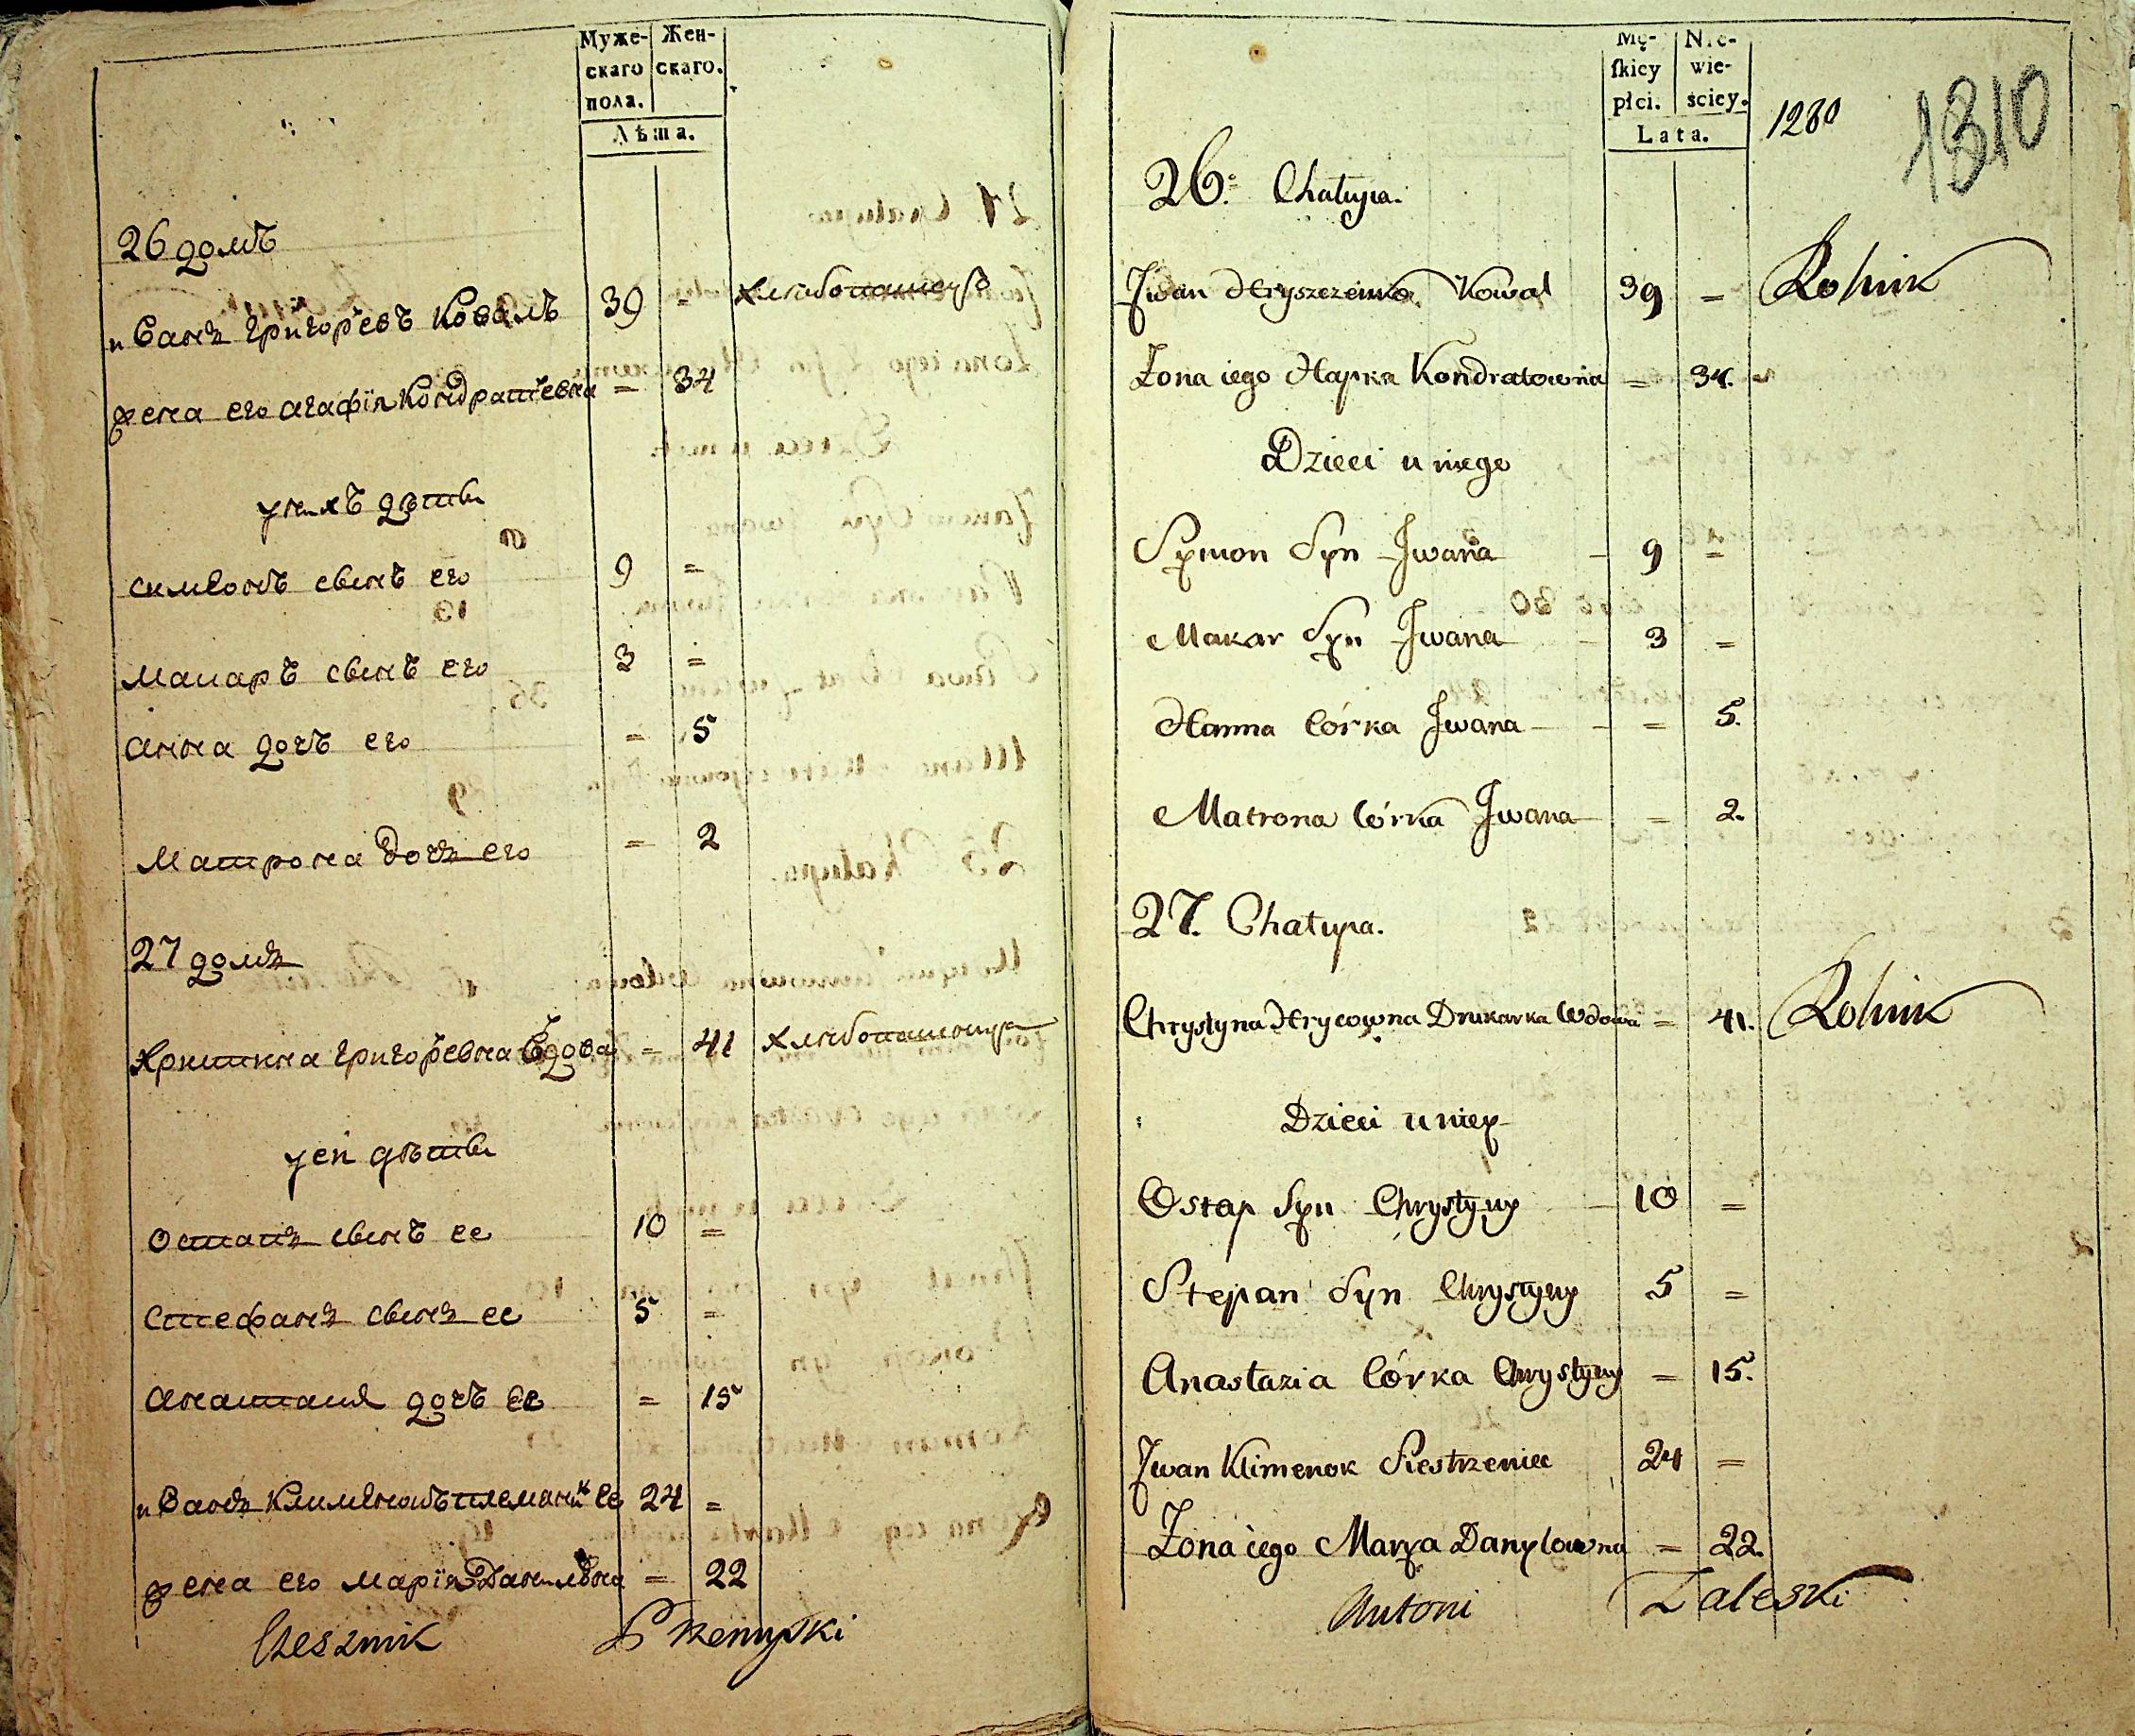 Муже-
скаго
пола.
Жен-
скаго.
Лѣта.
26 домъ
иванъ григорьевъ коваль 39 = хлѣбопашецъ
жена его агафїя кондратьевна = 34
у нихъ дѣти
симеонъ сынъ его 9 =
макаръ сынъ его 3 =
анна дочь его = 5
матрона дочь его = 2
27 домъ
христина григорьевна вдова = 41 хлѣбопашица
у ей дѣти
остапъ сынъ ее 10 =
стефанъ сынъ ее 5 =
анастасия дочь ее = 15
иванъ климѣнокъ племяник ее 24 =
жена его марїя Данилѣвна = 22
Czesznik Przemyski
Mę-
ſkiey
płci.
Nie-
wie-
ściey.
Lata.
1280
1310
26. Chałupa.
Jwan Hryszczenko Kowal 39 = Rolnik
Żona iego Hapka Kondratowna = 34.
Dzieci u niego
Symon Syn Jwana – 9 =
Makar Syn Jwana – 3 =
Hanna Córka Jwana – = 5.
Matrona Córka Jwana = 2.
27. Chałupa.
Chrystyna Hrycowna Drukarka Wdowa = 41. Rolnik
Dzieci u niey
Ostap Syn Chrystyny – 10 =
Stepan Syn Chrystyny 5 =
Anastazia Córka Chrystyny = 15.
Jwan Klimenok Siestrzeniec 24 =
Żona iego Marya Danylowna = 22.
Antoni Zaleski